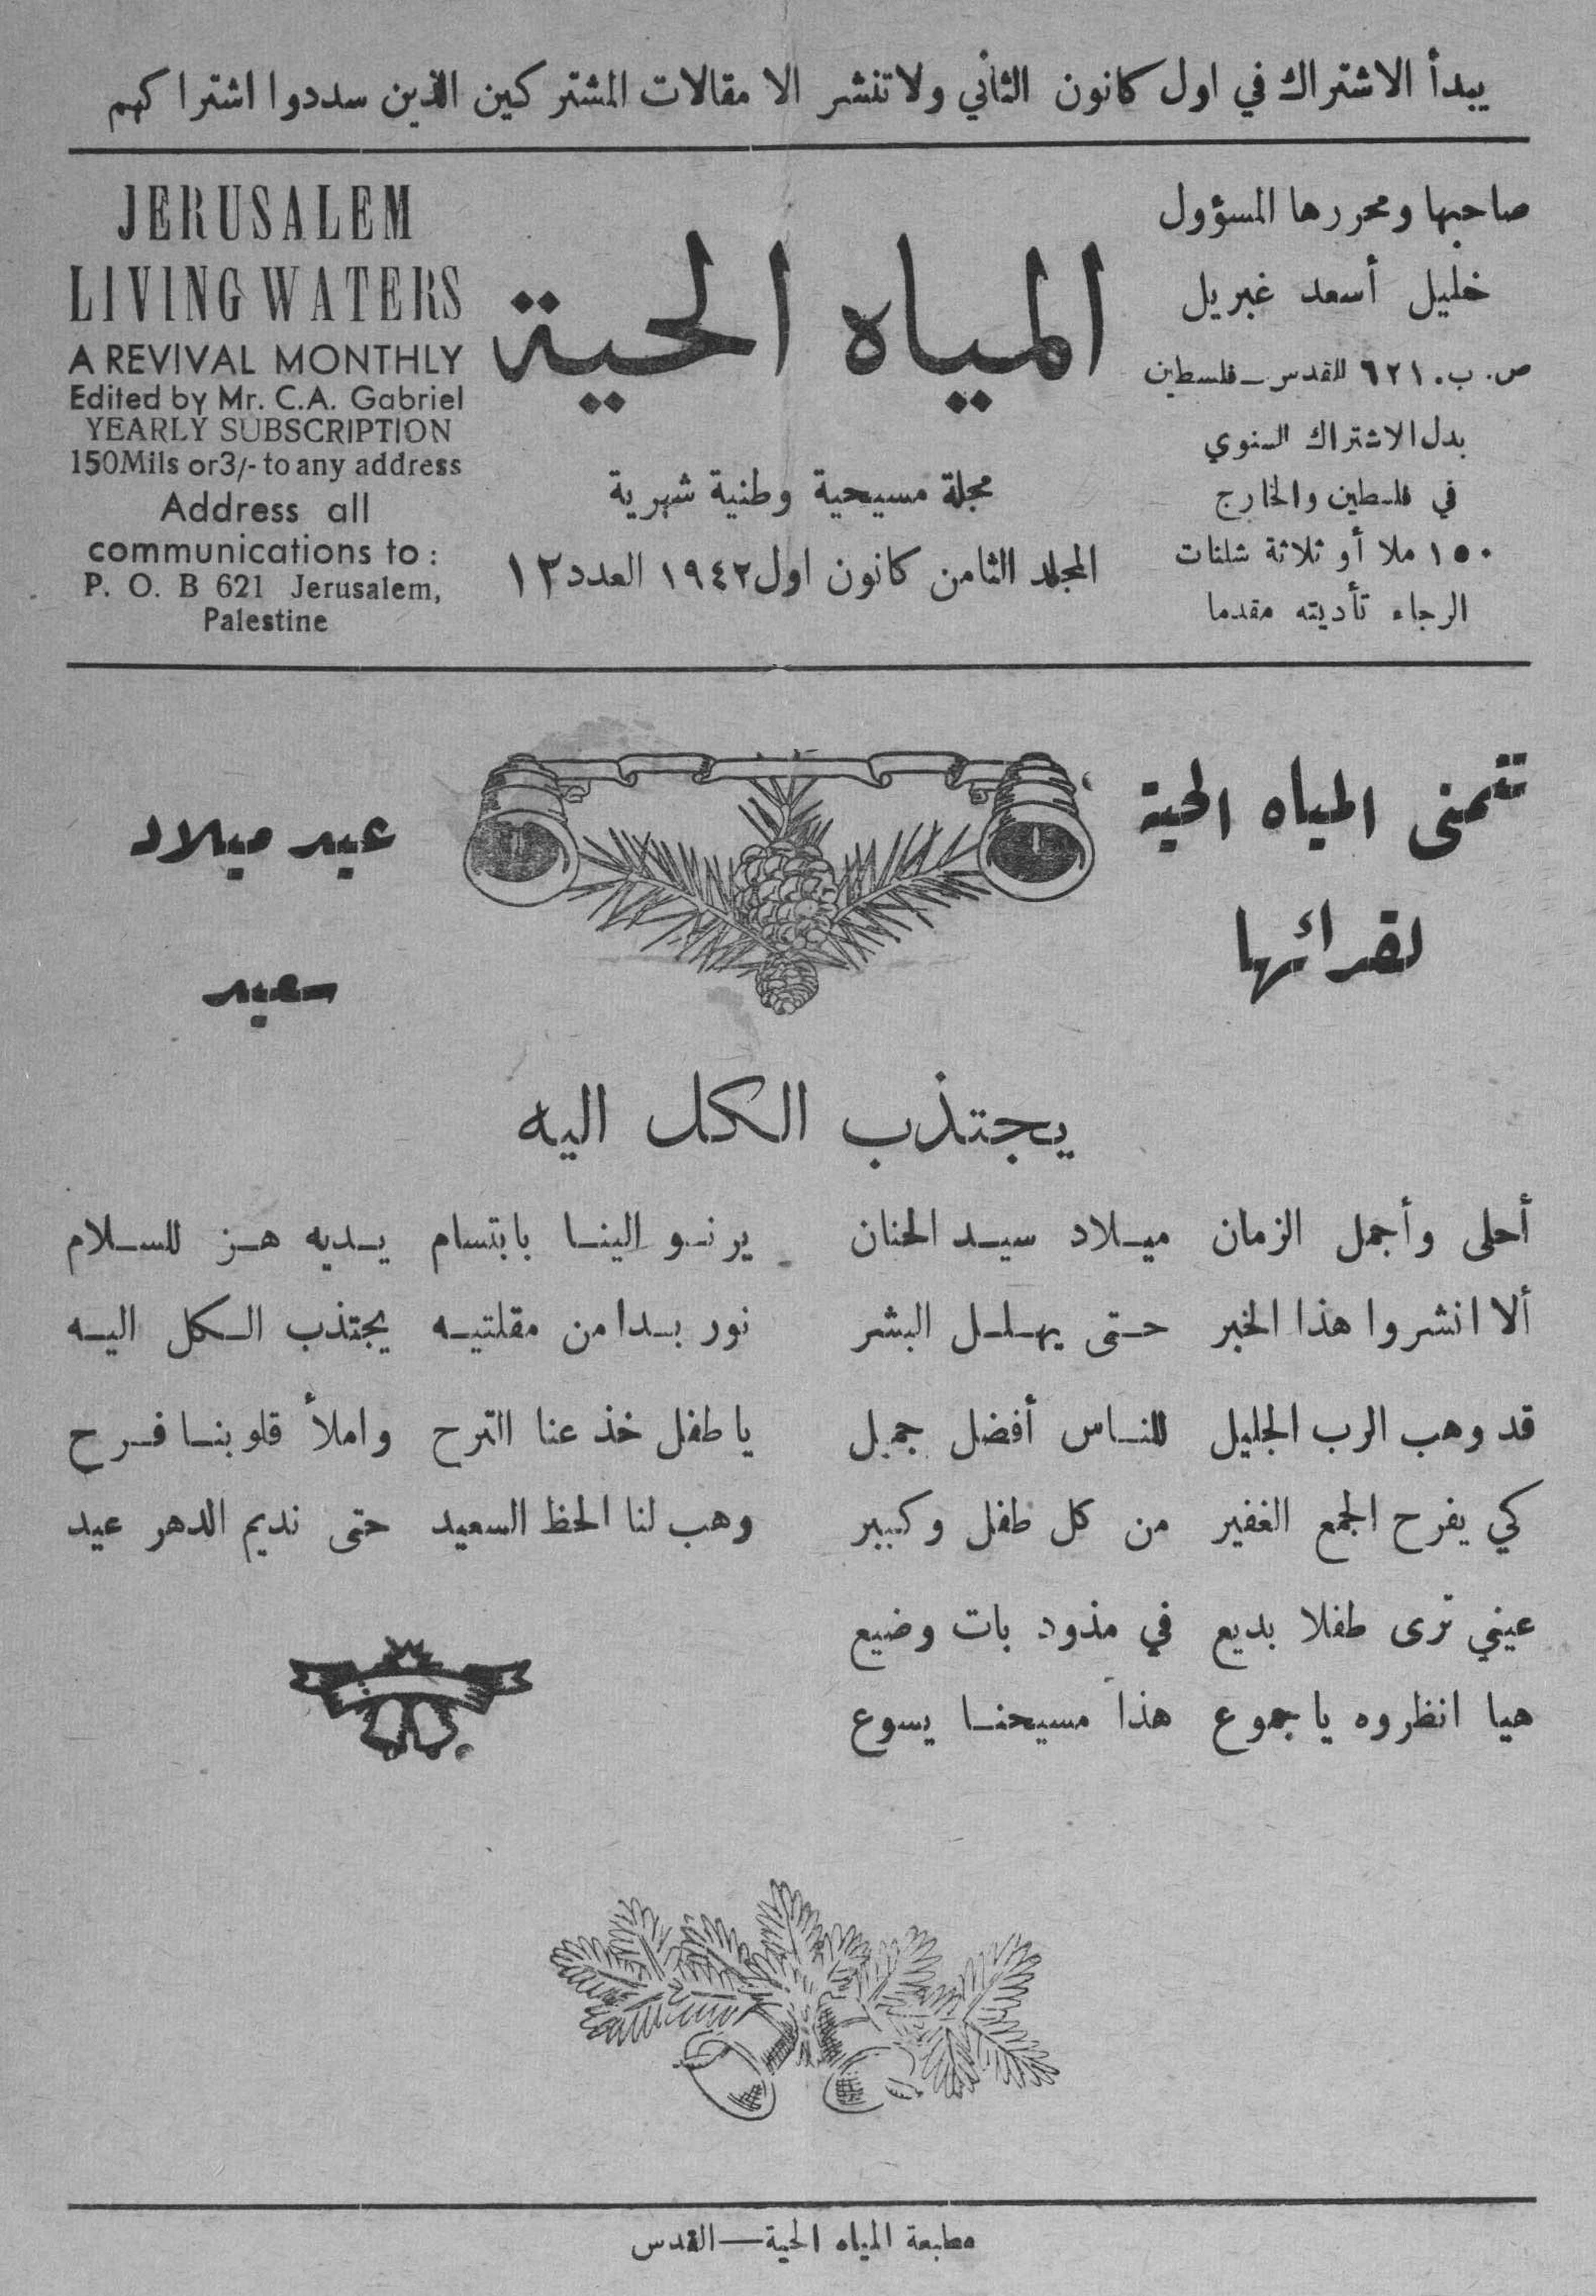 يبدأ الاشتراك في اول كانون الثاني ولا تنشر الا مقالات المشتركين الذين سددوا اشتراكهم
صاحبها ومحررها المسؤول
خليل أسعد غبريل
ص. ب. ٦٢١ القدس – فلسطين
بدل الاشتراك السنوي
في فلسطين والخارج
١٥٠ ملا أو ثلاثة شلنات
الرجاء تأديته مقدما
المياه الحية
مجلة مسيحية وطنية شهرية
المجلد الثامن كانون اول ١٩٤٢ العدد ١٢
JERUSALEM
LIVING WATERS
A REVIVAL MONTHLY
Edited by Mr. C.A. Gabriel
YEARLY SUBSCRIPTION
150Mils or 3/- to any address
Address all
communications to :
P. O. B 621 Jerusalem,
Palestine
تتمنى المياه الحية
لقرائها
عيد ميلاد
سعيد
يجتذب الكل اليه
أحلى وأجمل الزمان ميلاد سيد الحنان
ألا انشروا هذا الخبر حتى يهلل البشر
قد وهب الرب الجليل للناس أفضل جميل
كي يفرح الجمع الغفير من كل طفل وكبير
عيني ترى طفلا بديع في مذود بات وضيع
هيا انظروه يا جموع هذا مسيحنا يسوع
يرنو الينا بابتسام يديه هز للسلام
نور بدا من مقلتيه يجتذب الكل اليه
يا طفل خذ عنا الترح واملأ قلوبنا فرح
وهب لنا الحظ السعيد حتى نديم الدهر عيد
مطبعة المياه الحية — القدس